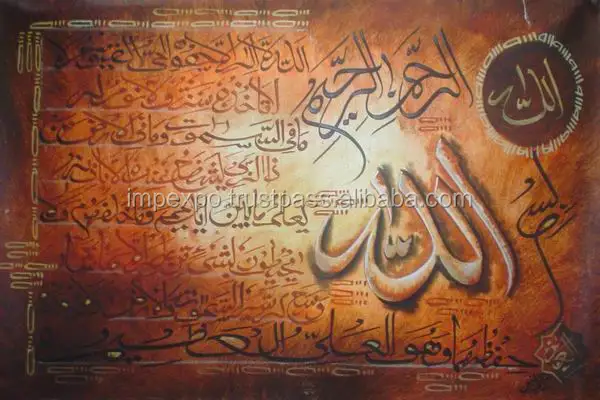 بسم الله الرحمن الرحيم
الله لا اله الا هو الحي القيوم لا
تاخذه سنة ولا نوم له
ما في السموت وما في الارض من
ذا الذي يشفع عنده الا باذنه
يعلم ما بين ايديهم وما خلفهم ولا
يحيطون بشيء من علمه الا بما شاء
وسع كرسيه السموت والارض
حفظهما وهو العلي العظيم
الله
impexpo.trustpass.alibaba.com